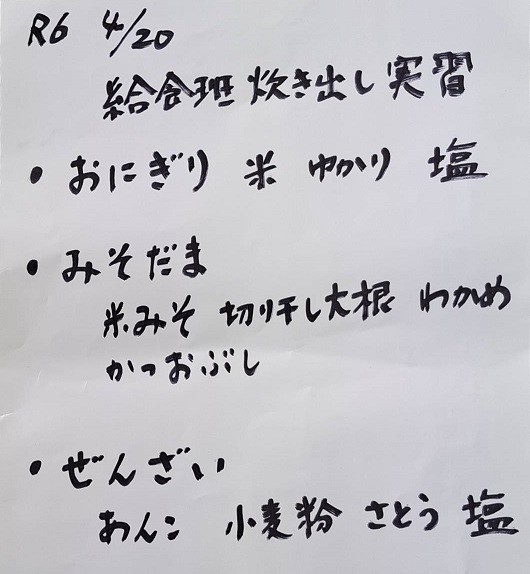 R6 4/20
給食班 炊き出し実習
・おにぎり 米 ゆかり 塩
・みそだま
米みそ 切り干し大根 わかめ
かつおぶし
・ぜんざい
あんこ 小麦粉 さとう 塩